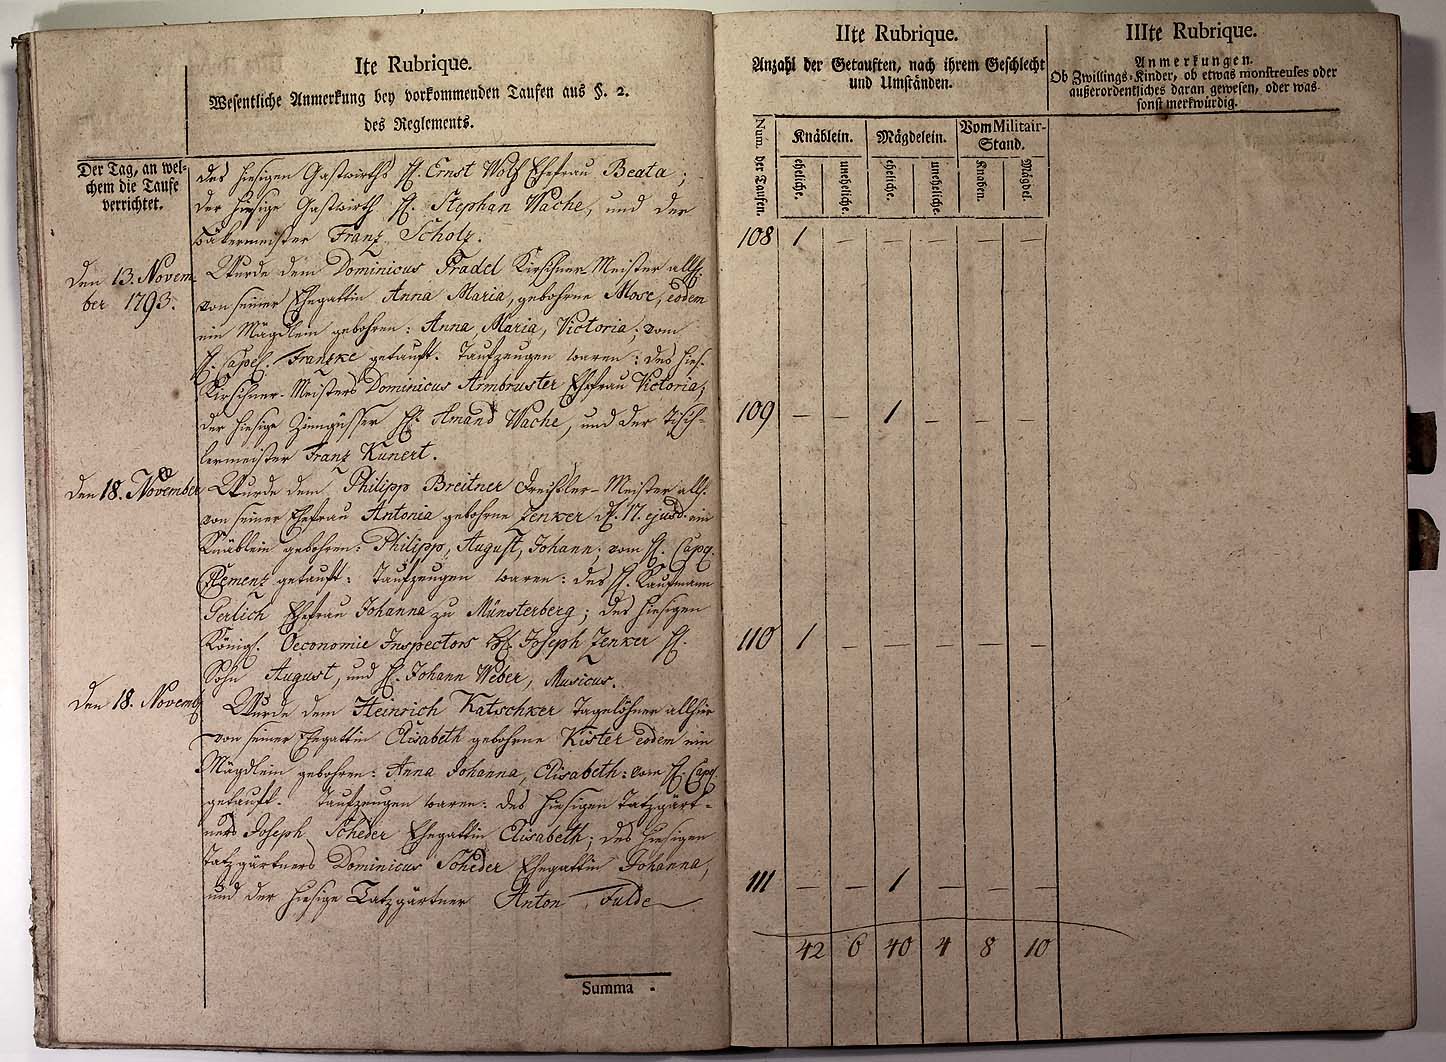 Ite Rubrique.
Wesentliche Anmerkung bey vorkommenden Taufen aus §. 2.
des Reglements.
Der Tag, an wel-
chem die Taufe
verrichtet.
des hiesigen Gastwirths H. Ernst Wolf Ehefrau Beata;
der hiesige Gastwirth H. Stephan Wache, und der
Bäkermeister Franz Scholz.
den 13. Novem-
ber 1793.
Wurde dem Dominicus Pradel Kirschner-Meister allh.
von seiner Ehegattin Anna Maria, gebohrne Mose, eodem
ein Mägdlein gebohren: Anna, Maria, Victoria; vom
H. Capel. Franzke getauft. Taufzeugen waren: des hies.
Kirschner-Meisters Dominicus Armbruster Ehefrau Victoria,
der hiesige Zinngüsser H. Amand Wache, und der Tisch-
lermeister Franz Kunert.
den 18. November
Wurde dem Philipp Breitner Meister allh.
von seiner Ehefrau Antonia gebohrne Zenker d. 17. ejusd. ein
Knäblein gebohren: Philipp, August, Johann; vom H. Cap.
Klement getauft: Taufzeugen waren: des H. Kaufmann
Gerlich Ehefrau Johanna zu Münsterberg; des hiesigen
Königl. Oeconomie Inspectors H. Joseph Zenker H.
Sohn August, und H. Johann Weber, Musicus.
den 18. Novemb.
Wurde dem Heinrich Katschker Tagelöhner allhier
von seiner Ehegattin Elisabeth gebohrne Kister eodem ein
Mägdlein gebohren: Anna Johanna, Elisabeth: vom H. Cap.
getauft. Taufzeugen waren: des hiesigen Tatzgärt-
ners Joseph Scheder Ehegattin Elisabeth; des hiesigen
Tatzgärtners Dominicus Scheder Ehegattin Johanna,
und der hiesige Tatzgärtner Anton Fulde
Summa
IIte Rubrique.
Anzahl der Getauften, nach ihrem Geschlecht
und Umständen.
Num. der Taufen.
Knäblein.
Mägdelein.
Vom Militair-
Stand.
eheliche.
uneheliche.
eheliche.
uneheliche.
Knaben.
Mägdel.
108 1 – – – – –
109 – – 1 – – –
110 1 – – – – –
111 – – 1 – – –
42 6 40 4 8 10
IIIte Rubrique.
Anmerkungen.
Ob Zwillings-Kinder, ob etwas monstreuses oder
außerordentliches daran gewesen, oder was
sonst merkwürdig.